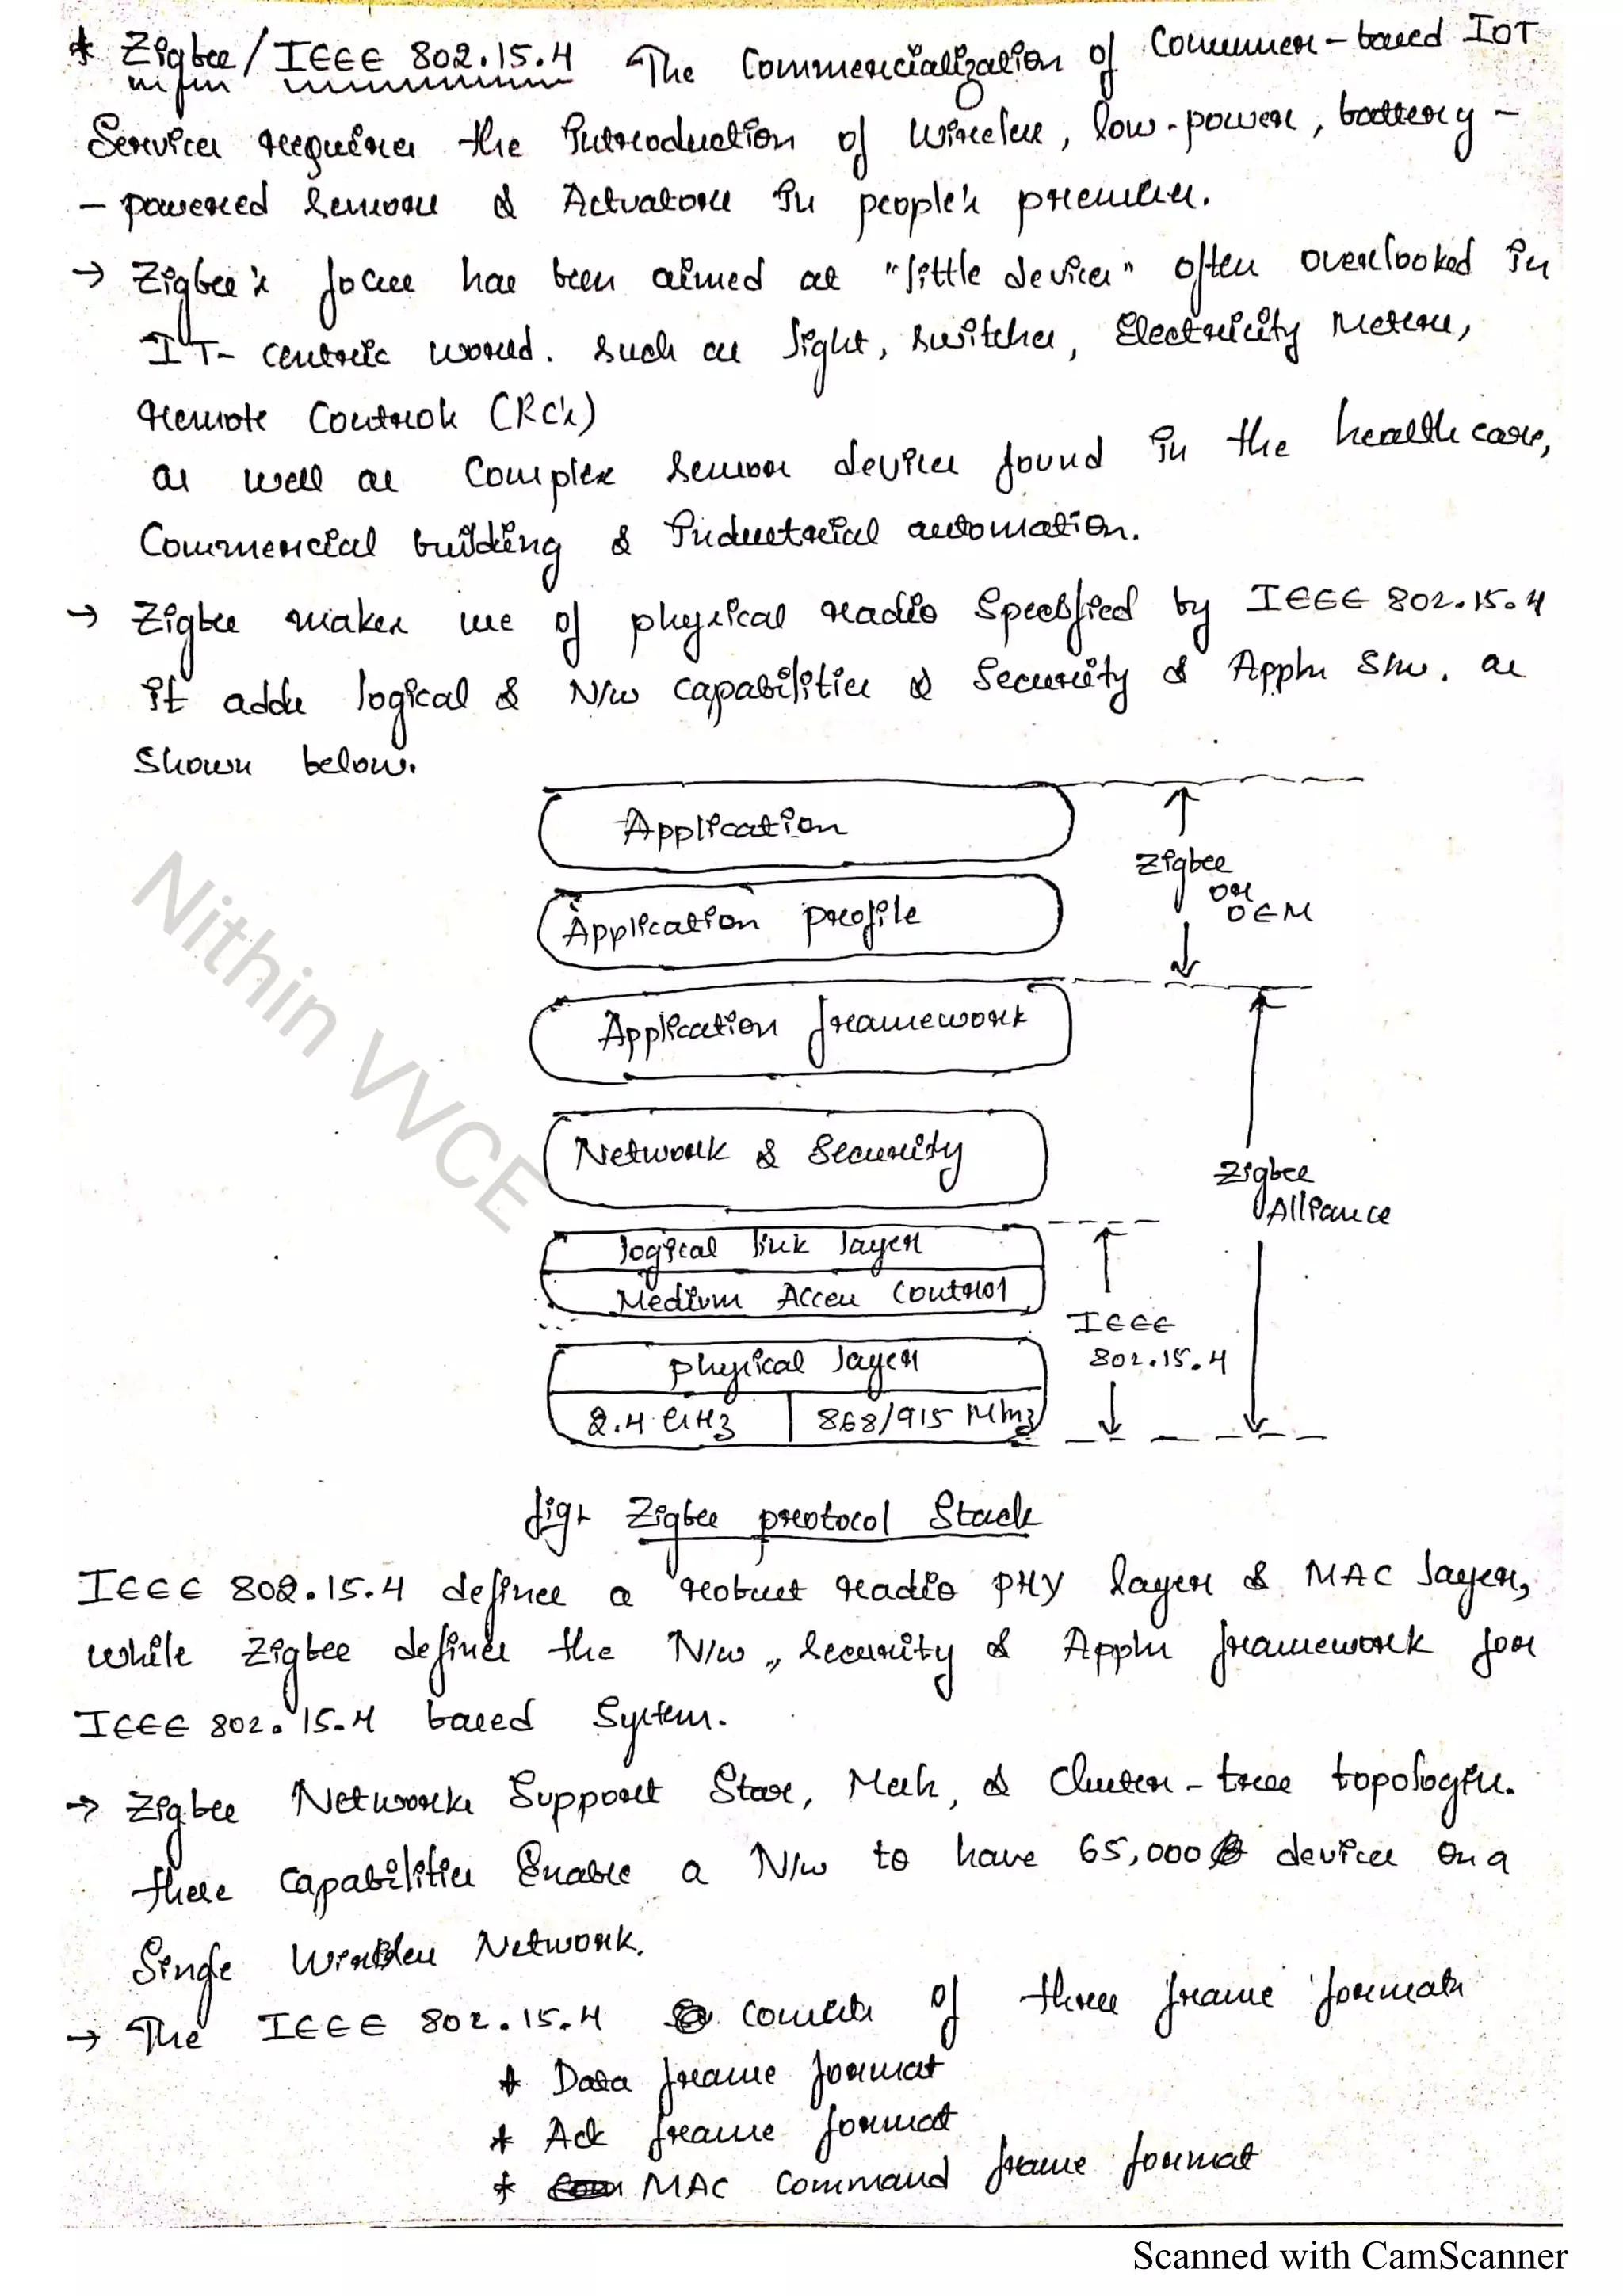 * Zigbee / IEEE 802.15.4 The Commercialization of Consumer-based IOT
Services requires the Introduction of wireless, low-power, battery -
- powered sensors & Actuators In people's premises.
→ Zigbee's focus has been aimed at "little devices" often overlooked in
IT- centric world. such as light, switches, Electricity Meters,
remote Controls (RC's)
as well as Complex sensor devices found in the health care,
Commercial building & Industrial automation.
→ Zigbee makes use of physical radio Specified by IEEE 802.15.4
it adds logical & N/w capabilities & Security & Appln S/w. as
shown below.
Application
Zigbee
or
OEM
Application profile
Application framework
Network & Security
Zigbee
Alliance
logical link layer
Medium Access Control
IEEE
802.15.4
physical layer
2.4 GHz | 868/915 Mhz
fig: Zigbee protocol Stack
IEEE 802.15.4 defines a robust radio PHY layer & MAC layer,
while Zigbee defines the N/w, security & Appln framework for
IEEE 802.15.4 based System.
→ Zigbee Networks Support Star, Mesh, & Cluster-tree topologies.
these capabilities Enable a N/w to have 65,000 devices on a
Single Wireless Network.
→ The IEEE 802.15.4 consists of three frame formats
* Data frame format
* Ack frame format
* MAC command frame format
Nithin VVCE
Scanned with CamScanner